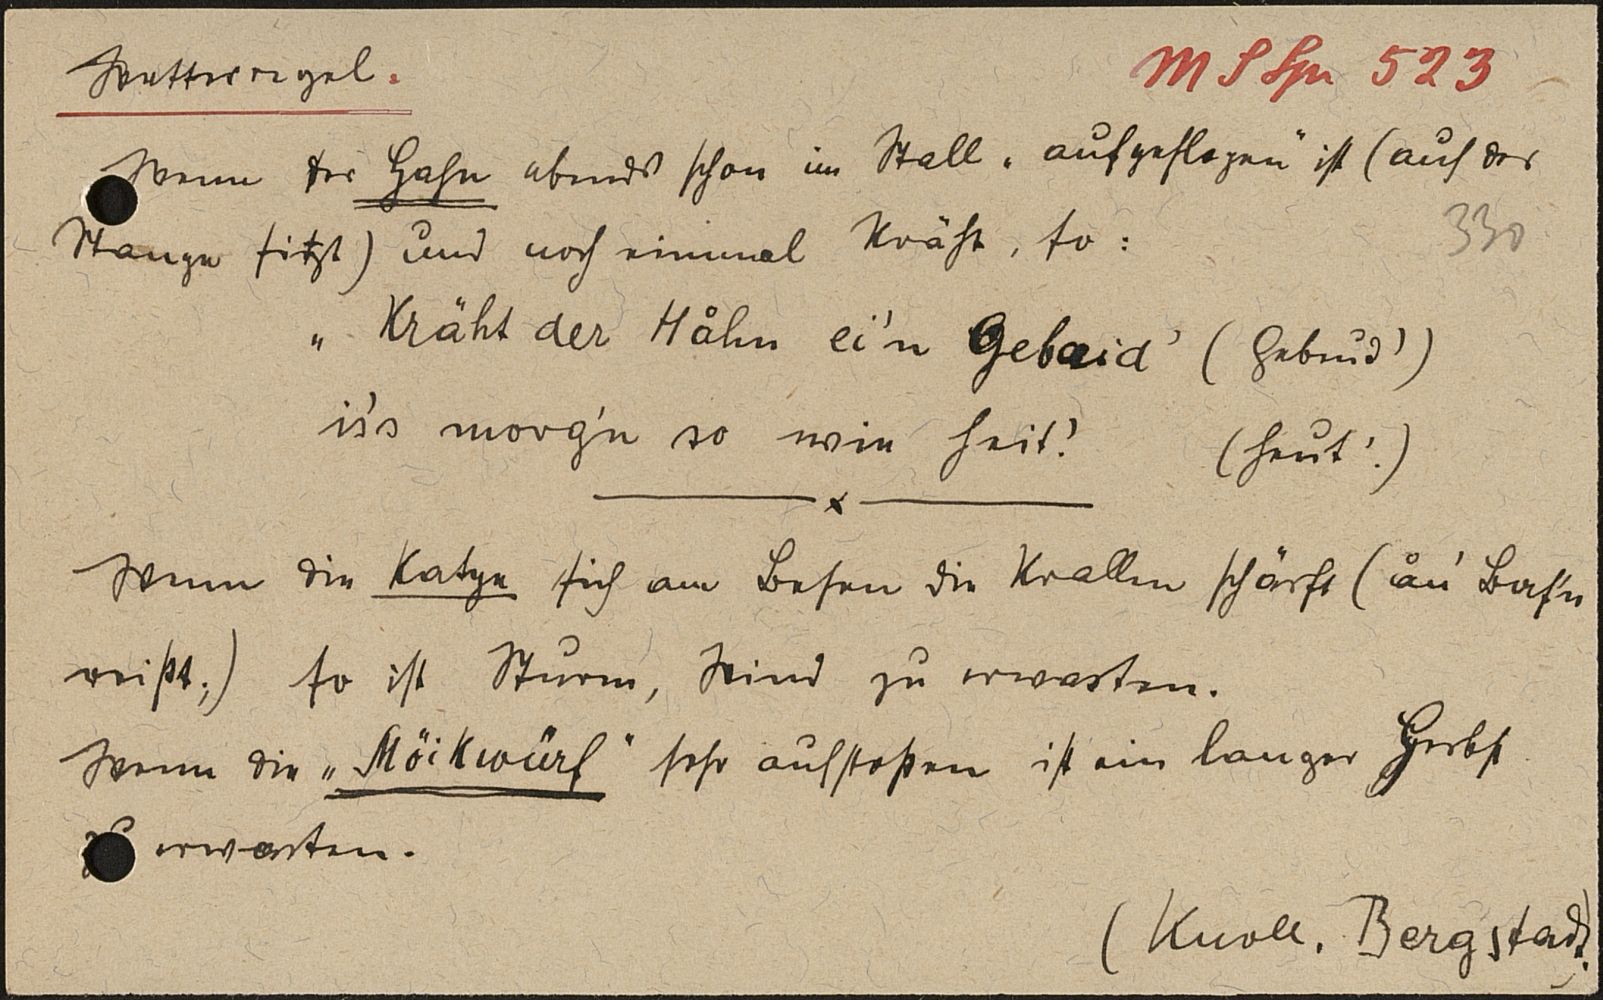 Wetterregel.
M S Spr 523
Wenn der Hahn abends schon im Stall „aufgeflogen" ist (auf der
Stange sitzt) und noch einmal kräht, so:
330
„Kräht der Håhn ei'n Gebaid' (Gebeud')
is's morg'n so wie heit'! (heut'.)
Wenn die Katze sich am Besen die Krallen schärft (
reißt;) so ist Sturm, Wind zu erwarten.
Wenn die „Möikwürf" sehr aufstoßen ist ein langer Herbst
zu erwarten.
(Knoll, Bergstadt.)